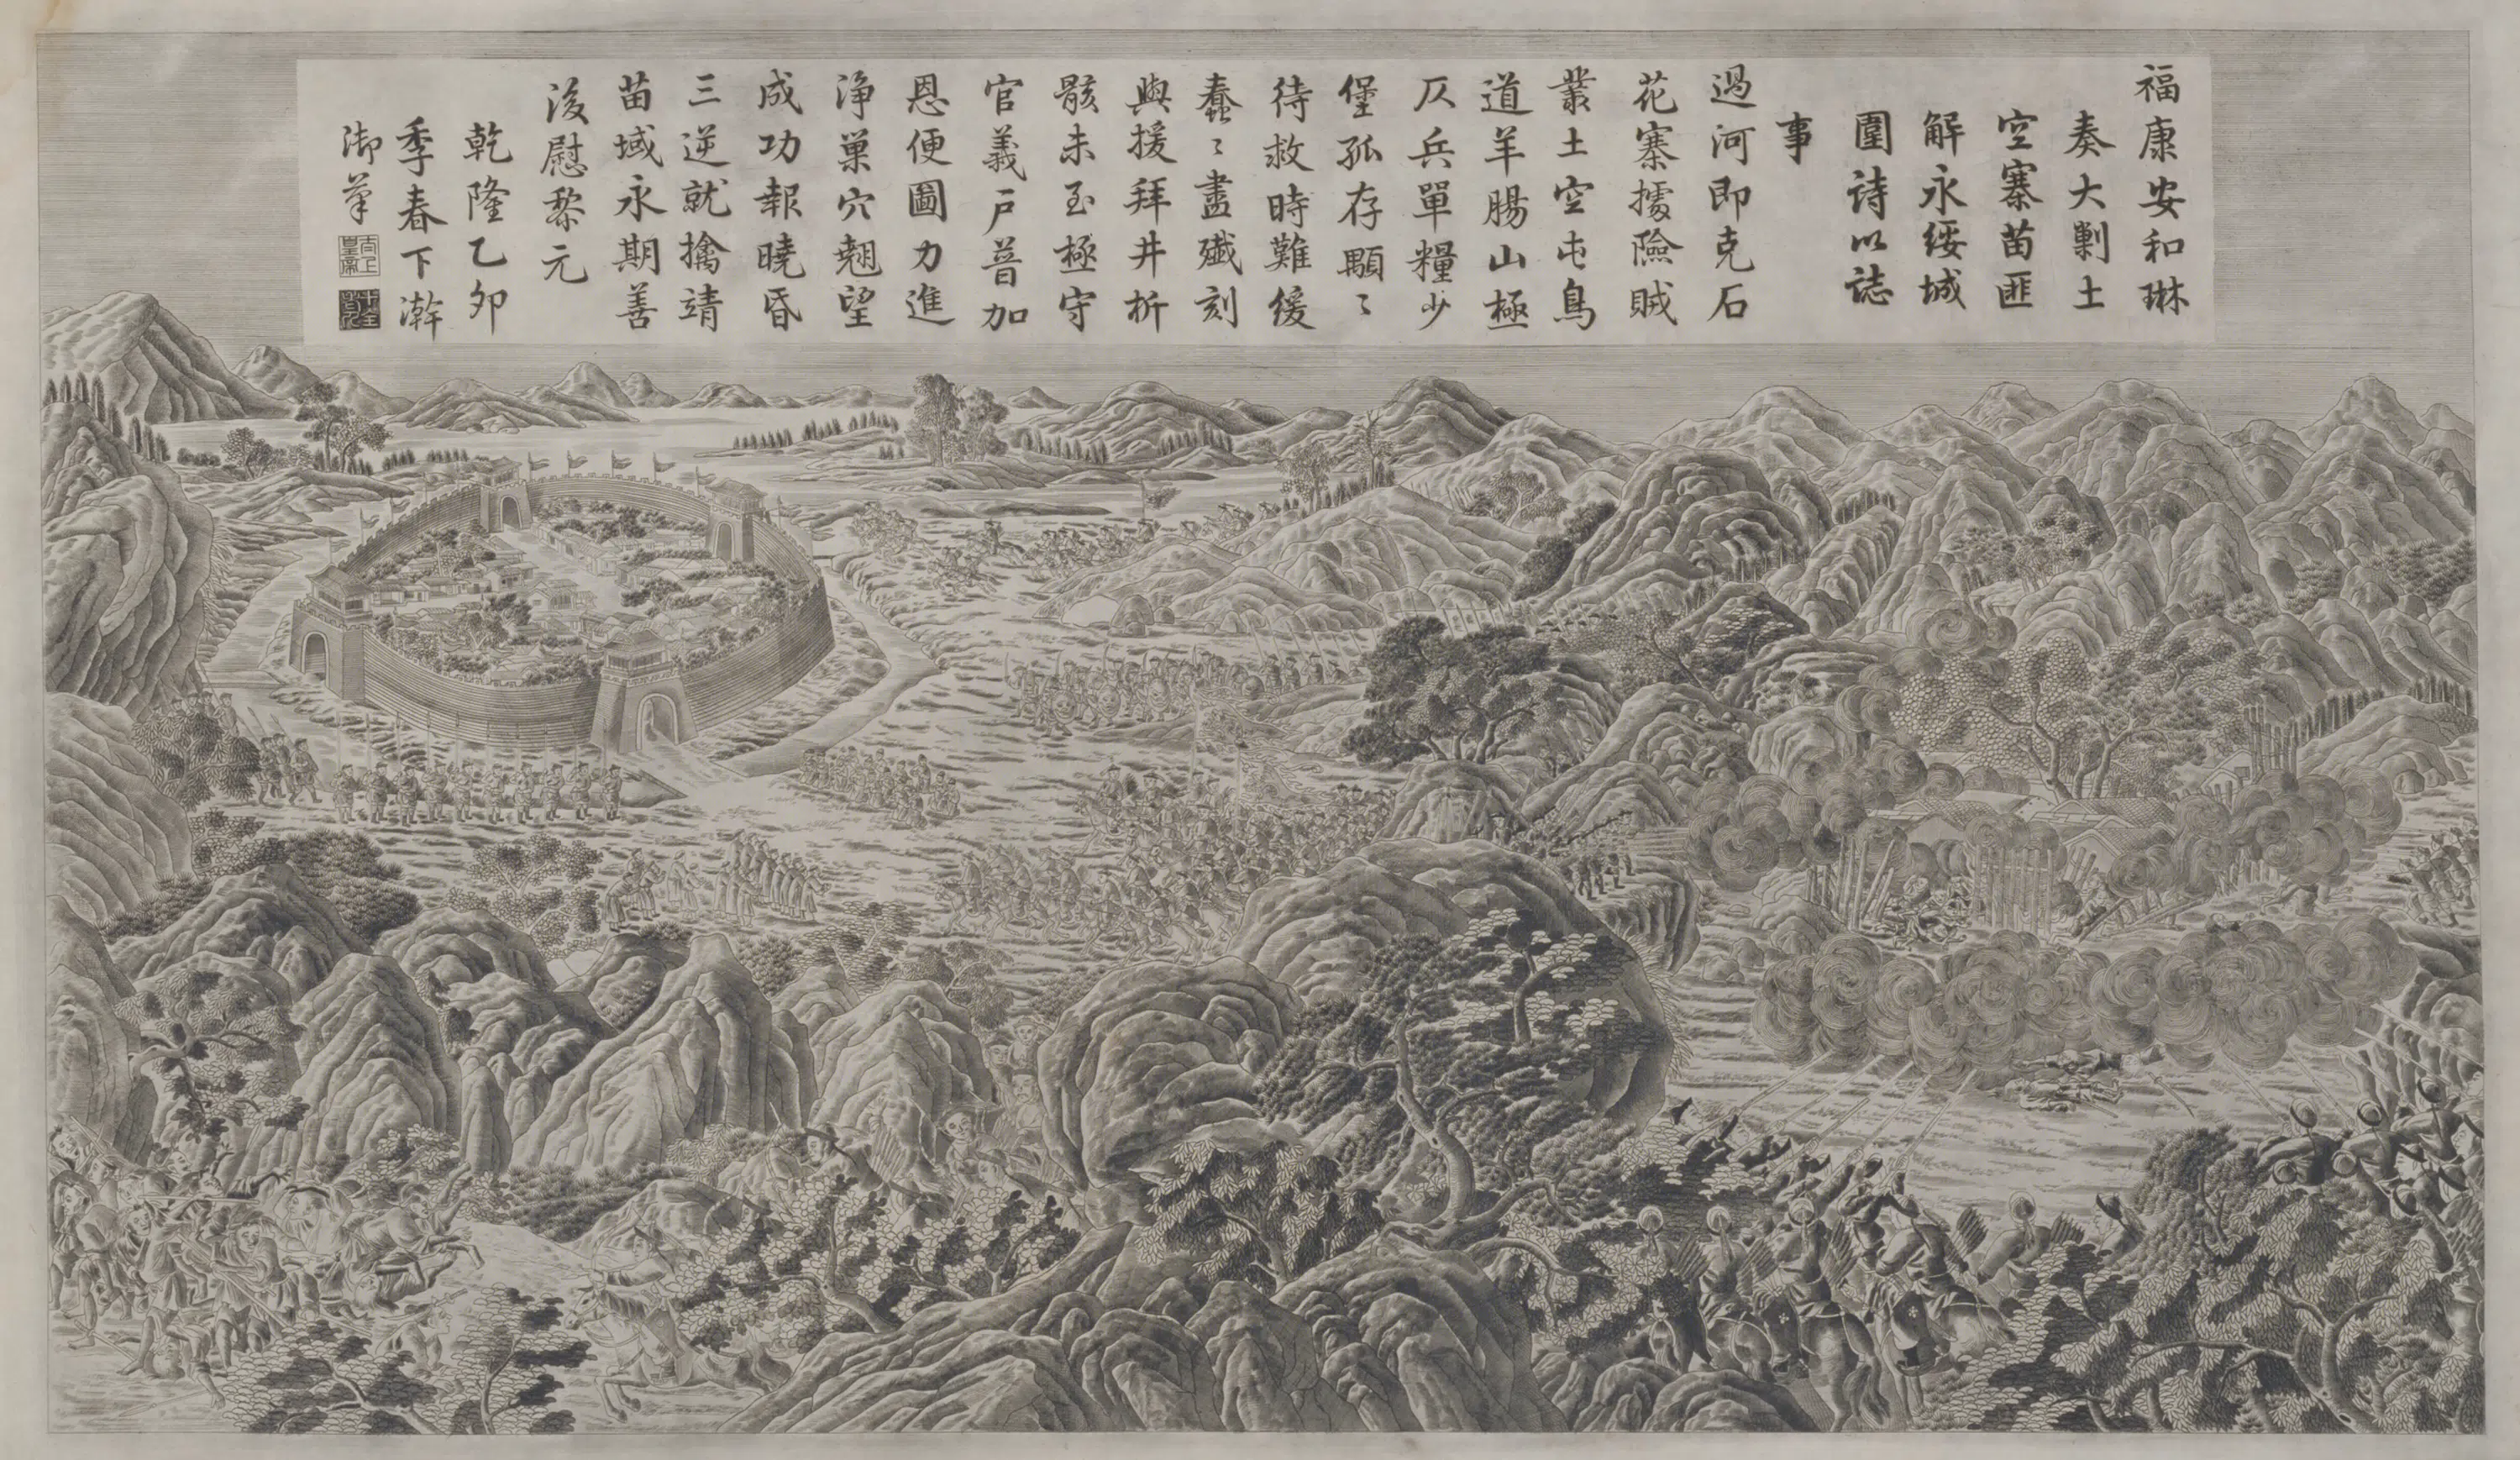 福康安和琳
奏大剿土
空寨苗匪
解永綏城
圍詩以誌
事
過河即克石
花寨據險賊
叢土空屯鳥
道羊腸山極
仄兵單糧少
堡孤存顒〻
待救時難緩
蠢〻盡殲刻
與援拜井析
骸未至極守
官義戶普加
恩便圖力進
淨巢穴翹望
成功報曉昏
三逆就擒靖
苗域永期善
後慰黎元
乾隆乙卯
季春下澣
御筆
太上皇帝
十全老人